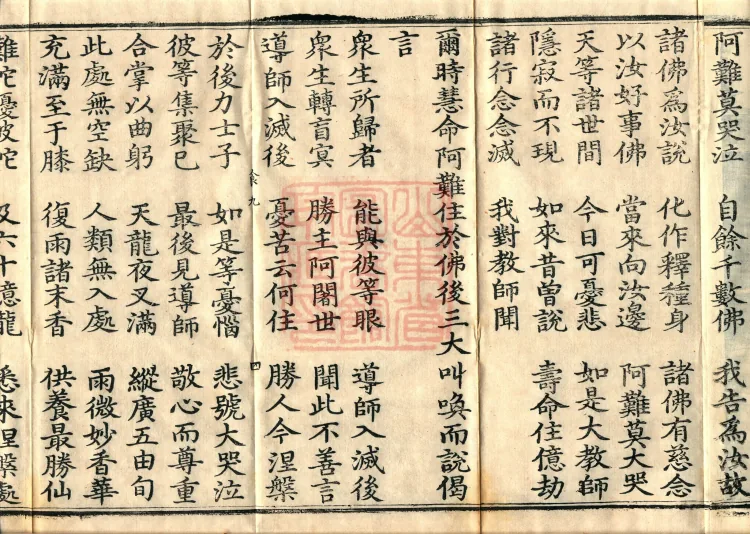 阿難莫哭泣 自餘千數佛 我告為汝故
諸佛為汝說 化作釋種身 諸佛有慈念
以汝好事佛 當來向汝邊 阿難莫大哭
天等諸世間 今日可憂悲 如是大教師
隱寂而不現 如來昔曾說 壽命住億劫
諸行念念滅 我對教師聞
爾時慧命阿難住於佛後三大叫喚而說偈
言
衆生所歸者 能與彼等眼 導師入滅後
衆生轉盲㝠 勝主阿闍世 聞此不善言
導師入滅後 憂苦云何住 勝人今涅槃
食九 四
於後力士子 如是等憂惱 悲號大哭泣
彼等集聚已 最後見導師 敬心而尊重
合掌以曲躬 天龍夜叉滿 縱廣五由旬
此處無空缺 人類無入處 雨微妙香華
充滿至于膝 復雨諸末香 供養最勝仙
難陀憂波陀 及六十億龍 悉來涅槃處